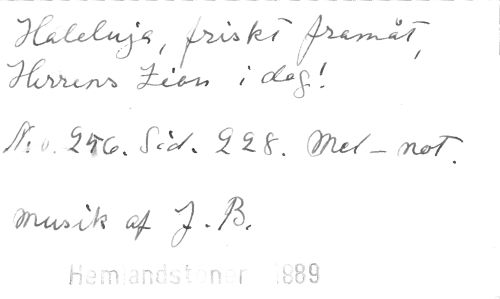 Haleluja, friskt framåt,
Herrens Zion i dag!
N:o. 256. Sid. 228. Mel-not.
musik af J. B.
Hemlandstoner 1889